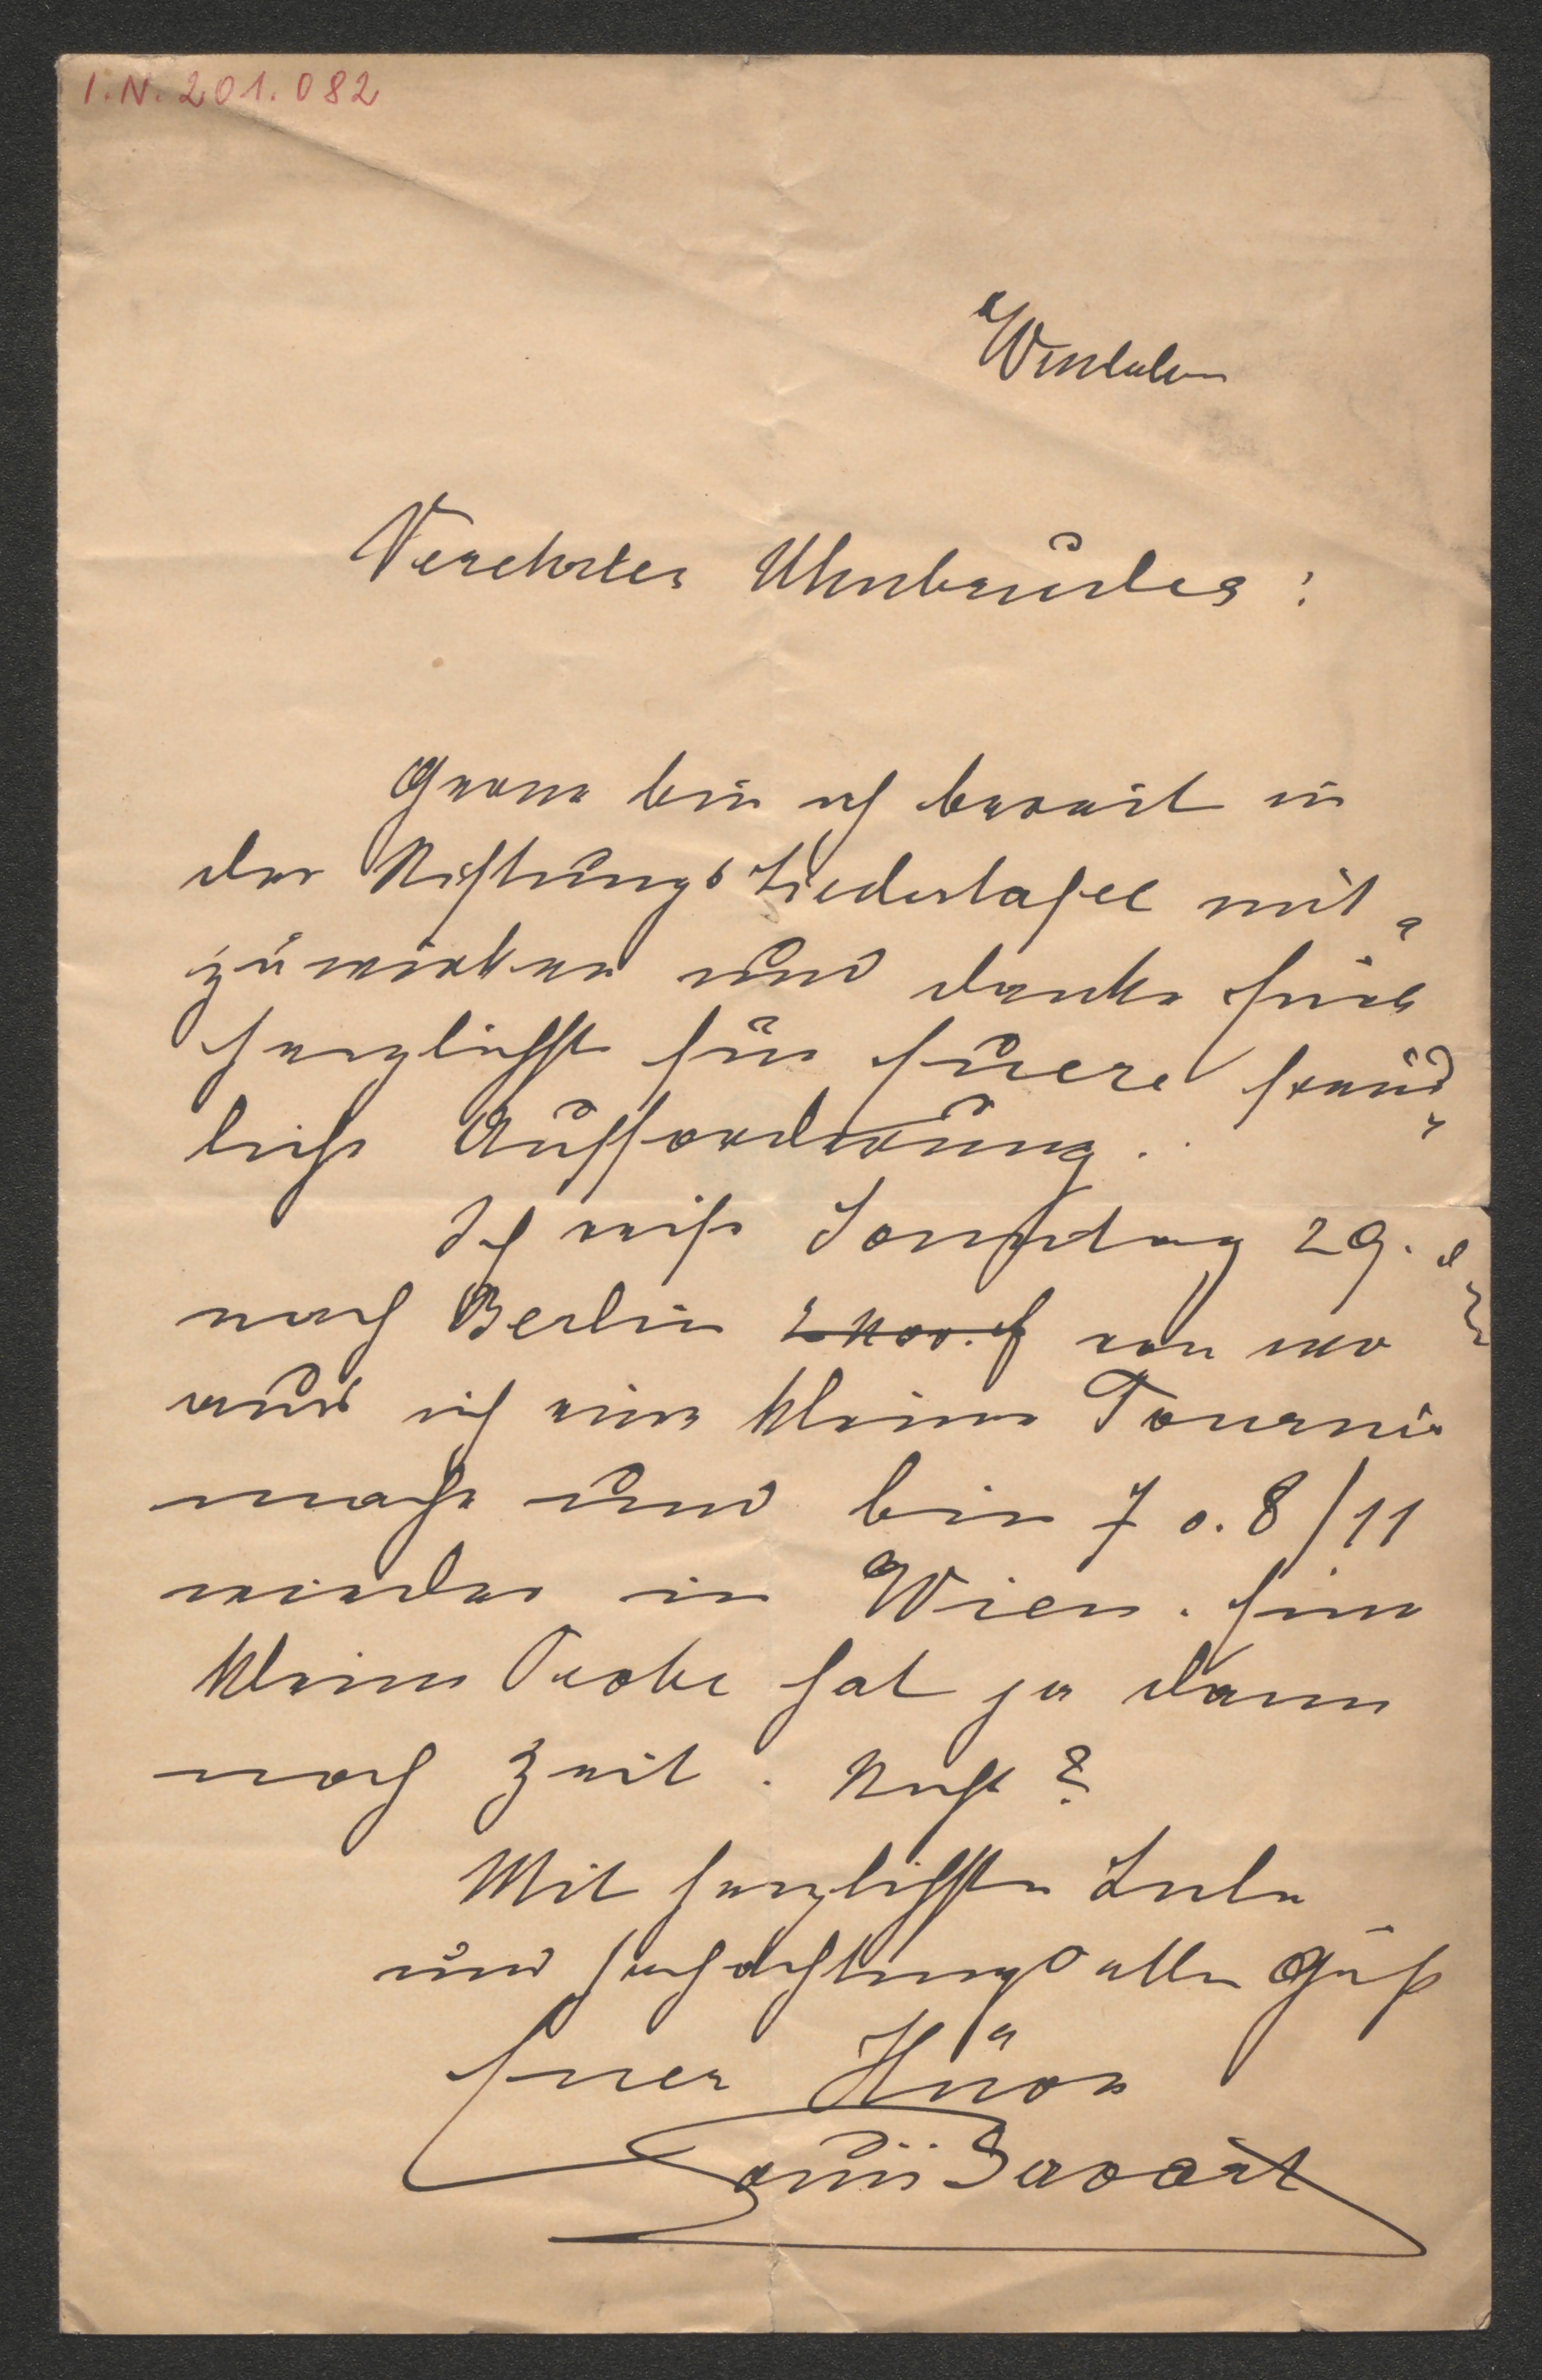 I.N. 201.082
Verehrter Uhubruder:
Gerne bin ich bereit in
der Stiftungsliedertafel mit-
zuwirken und danke Euch
herzlichst für Euere freund-
liche Aufforderung.
Ich reise Sonntag 29. d
nach Berlin 2 Nov. von wo
aus ich eine kleine Tournée
mache und bin 7 o. 8/11
wieder in Wien. Eine
kleine Probe hat ja dann
noch Zeit. Nicht?
Mit herzlichsten Lulu
und hochachtungsvollen Gruß
Euer
Louis Savart